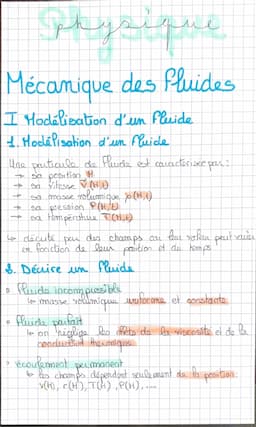 physique
Mécanique des fluides
I Modélisation d'un fluide
1. Modélisation d'un fluide
Une particule de fluide est caractérisée par :
→ sa position M
→ sa vitesse V(M,t)
→ sa masse volumique ρ(M,t)
→ sa pression P(M,t)
→ sa température T(M,t)
↳ décrite par des champs où leur valeur peut varier
en fonction de leur position et du temps
2. Décrire un fluide
• fluide incompressible
↳ masse volumique uniforme et constante
• fluide parfait
↳ on néglige les effets de la viscosité et de la
conductivité thermique
• écoulement permanent
↳ les champs dépendent seulement de la position:
v(M), ρ(M), T(M), P(M), ....